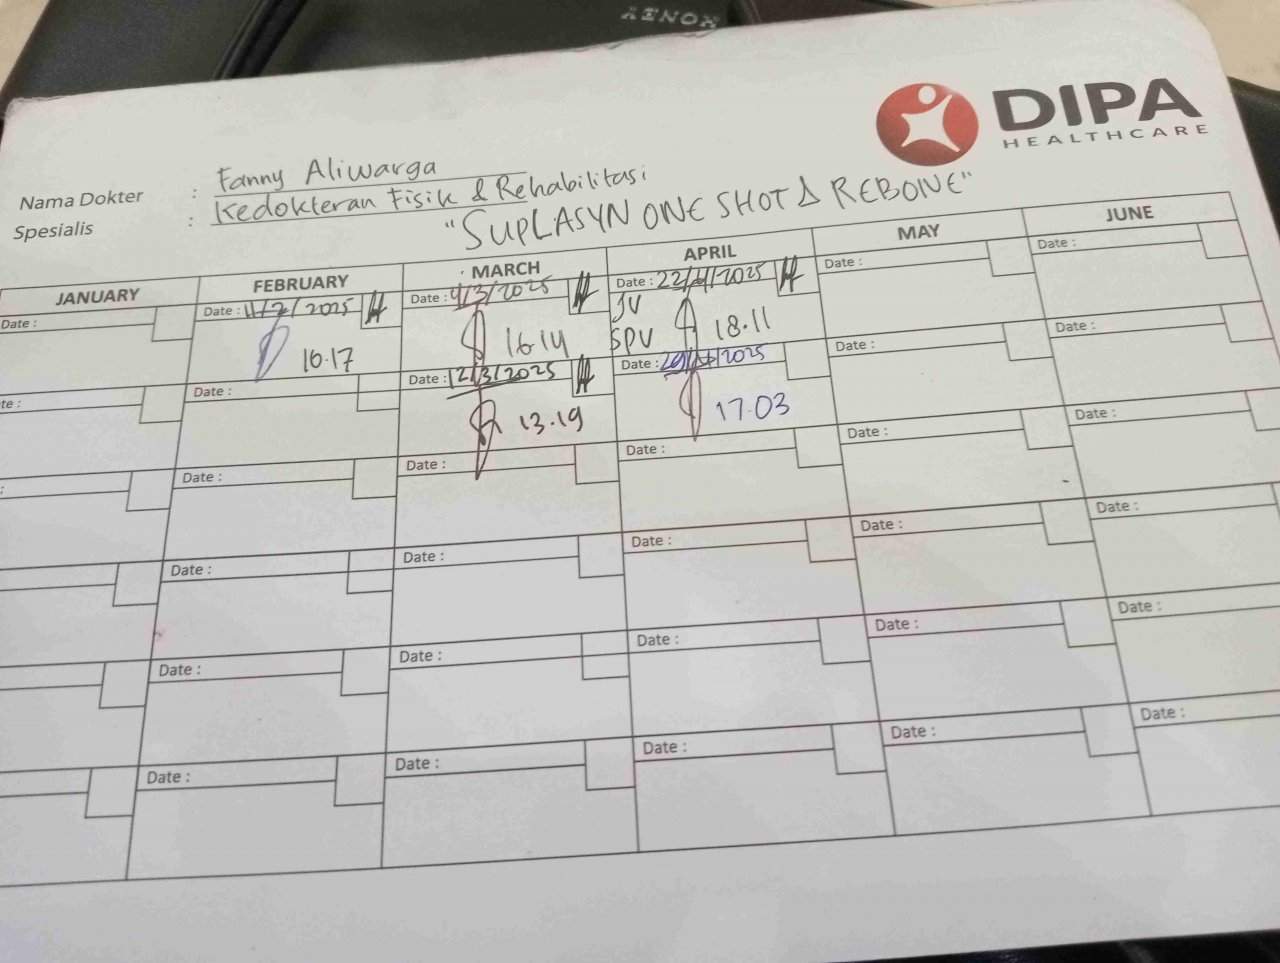 XENOX
DIPA
HEALTHCARE
Nama Dokter : Fanny Aliwarga
Spesialis : Kedokteran Fisik & Rehabilitasi
"SUPLASYN ONE SHOT & REBONE"
JANUARY FEBRUARY MARCH APRIL MAY JUNE
Date : Date : 11/2/2025 Date : 4/3/2025 Date : 22/4/2025 Date : Date :
16.17 16.14 JV SPV 18.11
te : Date : Date : 12/3/2025 Date : /2025 Date : Date :
13.19 17.03
: Date : Date : Date : Date : Date :
Date : Date : Date : Date : Date :
Date : Date : Date : Date : Date :
Date : Date : Date : Date : Date :